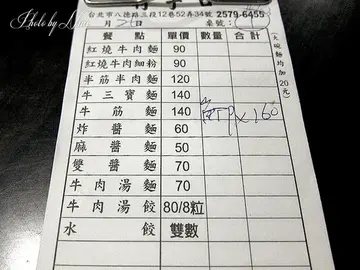 Photo by
台北市八德路三段12巷52弄34號 2579-6455
月 日 桌號:
餐點 單價 數量 合計
紅燒牛肉麵 90
紅燒牛肉細粉 90
半筋半肉麵 120
牛三寶麵 140
牛筋麵 140
炸醬麵 60
麻醬麵 50
雙醬麵 70
牛肉湯麵 70
牛肉湯餃 80/8粒
水餃 雙數
(大碗麵均加20元)
x 160